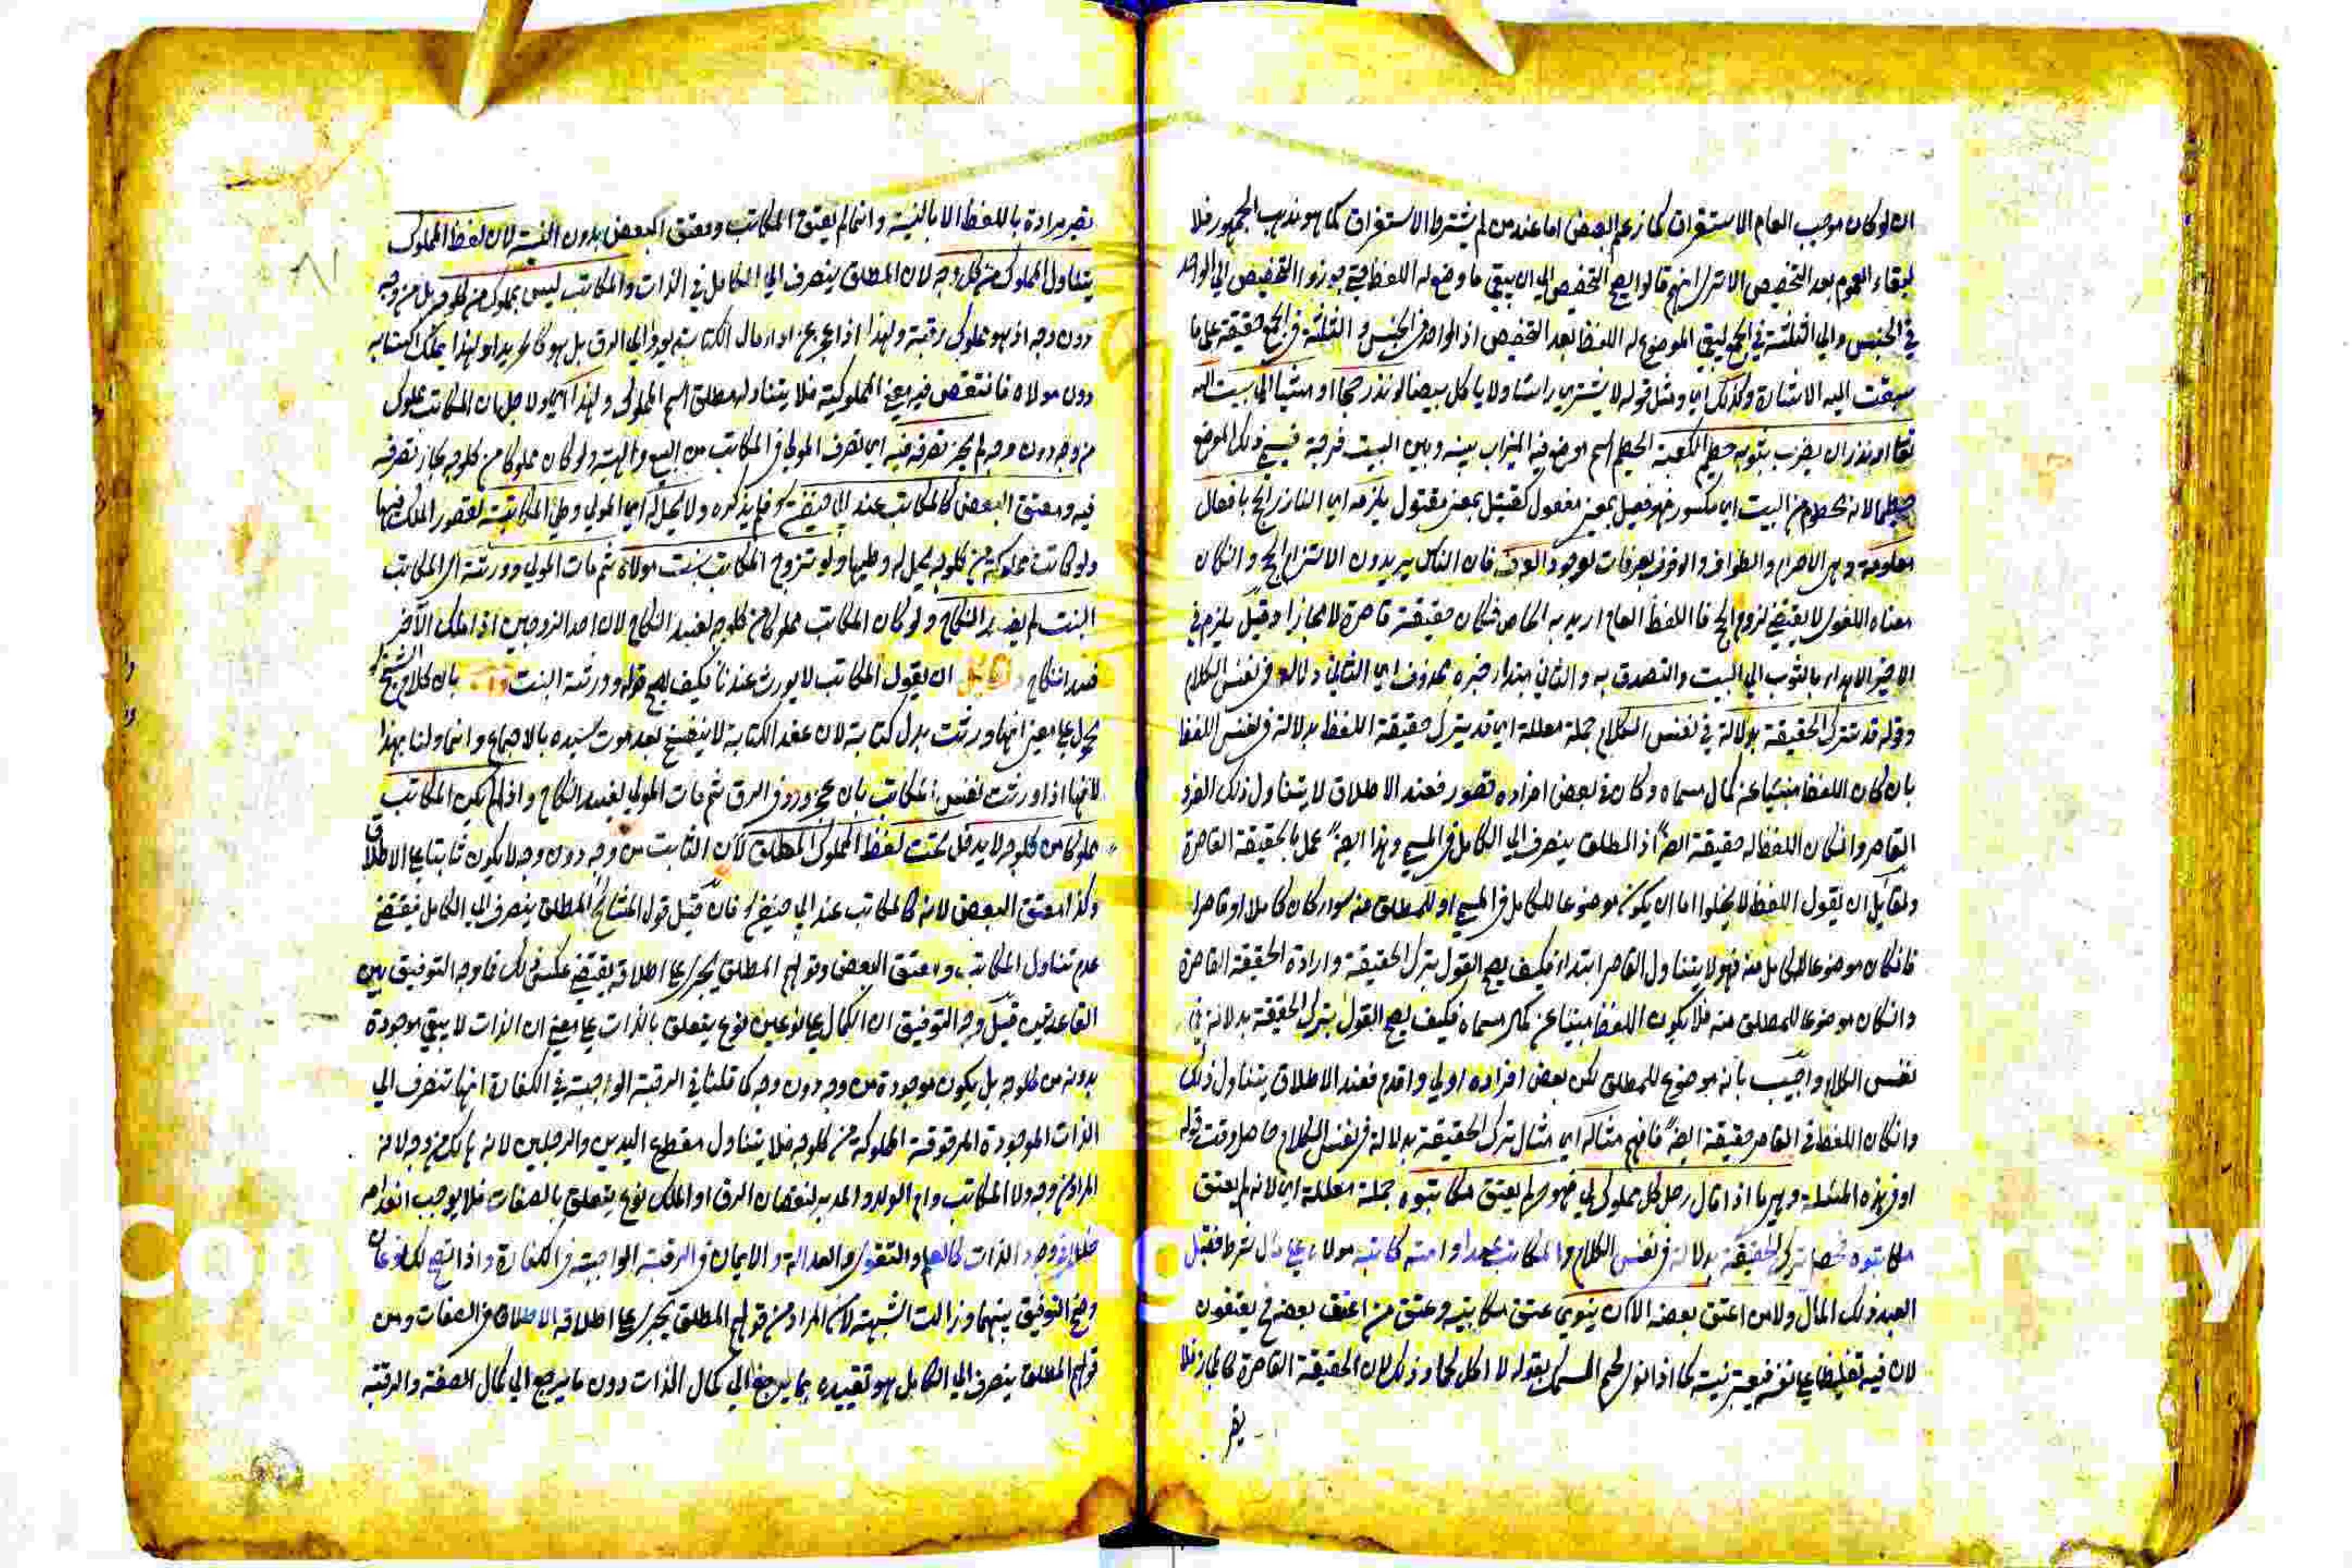 ان لو كان موجب العام الاستغراق كما زعم البعض اما عند من لم يشترط الاستغراق كما هو مذهب الجمهور فلا
لبقاء العموم بعد التخصيص الا ترى انهم قالوا يصح التخصيص الى ان يبقى ما وضع له اللفظ حتى جوزوا التخصيص الى الواحد
في الجنس والى الثلثة في الجمع ليبقى الموضوع له اللفظ بعد التخصيص اذ الواحد في الجنس و الثلثة في الجمع حقيقة على ما
سبقت اليه الاشارة وكذلك اي ومثل قوله لا يشترى راسا ولا ياكل بيضا لو نذر حجا او مشيا الى بيت الله
تعا او نذر ان يضرب بثوبه حطيم الكعبة الحطيم اسم موضع فيه الميزاب بينه وبين البيت فرجة فسمى ذلك الموضع
حطيما لانه محطوم من البيت اي مكسور فهو فعيل بمعنى مفعول كقتيل بمعنى مقتول يلزمه اي الناذر الحج بافعال
معلومة وهى الاحرام والطواف والوقوف بعرفات لوجود العرف فان الناس يريدون الالتزام الحج و ان كان
معناه اللغوى لا يقتضى لزوم الحج فاللفظ العام اريد به الخاص فكان حقيقة قاصرة لا مجازا وقيل يلزم في
الاخير الاهداء بالثوب الى البيت والتصدق به و الثانى مبتداء خبره محذوف اي الثانى دلالة في نفس الكلام
وقوله قد تترك الحقيقة بدلالة في نفس الكلام جملة معللة اي قد يترك حقيقة اللفظ بدلالة في نفس اللفظ
بان كان اللفظ منبئا عن كمال مسماه وكان في بعض افراده قصور فعند الاطلاق لا يتناول ذلك الفرد
القاصر وان كان اللفظ له حقيقة ايضا اذ المطلق ينصرف الى الكامل في المسمى وهذا ايضا عمل بالحقيقة القاصرة
ولقائل ان يقول اللفظ لا يخلوا اما ان يكون موضوعا للكامل في المسمى او للمطلق منه سواء كان كاملا او قاصرا
فان كان موضوعا للكامل منه فهو لا يتناول القاصر ابتداء فكيف يصح القول بترك الحقيقة وارادة الحقيقة القاصرة
وان كان موضوعا للمطلق منه فلا يكون اللفظ منبئا عن كمال مسماه فكيف يصح القول بترك الحقيقة بدلالة في
نفس الكلام واجيب بانه موضوع للمطلق لكن بعض افراده اولى واقدم فعند الاطلاق يتناول ذلك
وان كان اللفظ في القاصر حقيقة ايضا فافهم مثاله اي مثال ترك الحقيقة بدلالة في نفس الكلام حاصل وقت قوله
او في هذه المسئلة وهي ما اذا قال رجل كل مملوك لى فهو حر لم يعتق مكاتبوه جملة معللة اي لانه لم يعتق
مكاتبوه فحصل ترك الحقيقة بدلالة في نفس الكلام والمكاتب عبد او امة كاتبه مولاه على مال شرط فقبل
العبد ذلك المال ولا من اعتق بعضه الا ان ينوى عتق مكاتبيه وعتق من اعتق بعضه فح يعتقون
لان فيه تغليظا على نفسه فيعتبر نيته كما اذا نوى لحم السمك بقوله لا اكل لحما وذلك لان الحقيقة القاصرة كالمجاز فلا
يصر
يصير مرادة باللفظ الا بالنية وانما لم يعتق المكاتب ومعتق البعض بدون النية لان لفظ المملوك
يتناول المملوك من كل وجه لان المطلق ينصرف الى الكامل في الذات والمكاتب ليس بمملوك من كل وجه بل من وجه
دون وجه اذ هو مملوك رقبة ولهذا اذا عجز عن اداء مال الكتابة يرد الى الرق بل هو كالحر يدا ولهذا يملك اكتسابه
دون مولاه فانتقص فيه معنى المملوكية فلا يتناوله مطلق اسم المملوك ولهذا اي ولاجل ان المكاتب مملوك
من وجه دون وجه لم يجز تصرفه فيه اي تصرف المولى في المكاتب من البيع والهبة ولو كان مملوكا من كل وجه لجاز تصرفه
فيه ومعتق البعض كالمكاتب عند ابى حنيفة فلم يذكره ولا يحل له اي المولى وطى المكاتبة لقصور الملك فيها
ولو كانت مملوكة من كل وجه لحل له وطيها ولو تزوج المكاتب بنت مولاه ثم مات المولى وورثته اي المكاتب
البنت لم يفسد النكاح ولو كان المكاتب مملوكا من كل وجه لفسد النكاح لان احد الزوجين اذا ملك الآخر
فسد النكاح ولقائل ان يقول المكاتب لا يورث عندنا فكيف يصح قوله وورثته البنت بان كلام الشيخ
محمول على معنى انها ورثت بدل كتابة لان عقد الكتابة لا ينفسخ بعد موت سيده بالاجماع وانما اولنا بهذا
لانها اذا ورثت نفس المكاتب بان عجز ورد في الرق ثم مات المولى يفسد النكاح واذا لم يكن المكاتب
مملوكا من كل وجه لا يدخل تحت لفظ المملوك المطلق لان الثابت من وجه دون وجه لا يكون ثابتا على الاطلاق
وكذا معتق البعض لانه كالمكاتب عند ابى حنيفة فان قيل قول المشايخ المطلق ينصرف الى الكامل يقتضى
عدم تناول المكاتب ومعتق البعض وقولهم المطلق يجرى على اطلاقه يقتضى عكس ذلك فما وجه التوفيق بين
القاعدتين قيل وجه التوفيق ان الكمال على نوعين نوع يتعلق بالذات على معنى ان الذات لا يبقى موجودة
بدونه من كل وجه بل يكون موجودة من وجه دون وجه كما قلنا في الرقبة الواجبة في الكفارة انها تنصرف الى
الذات الموجودة المرقوقة المملوكة من كل وجه فلا يتناول مقطوع اليدين والرجلين لانه هالك من وجه لانه
المراد من وجه ولا المكاتب وام الولد والمدبر لنقصان الرق او الملك نوع يتعلق بالصفات فلا يوجب انعدامه
خللا في وجود الذات كالعلم والتقوى والعدالة والايمان في الرقبة الواجبة في الكفارة واذا اتضح لك نوعان
وضح التوفيق بينهما وزالت الشبهة لان المراد من قولهم المطلق يجرى على اطلاقه الاطلاق في الصفات ومن
قولهم المطلق ينصرف الى الكامل هو تقييده بما يرجع الى كمال الذات دون ما يرجع الى كمال الصفة والرقبة